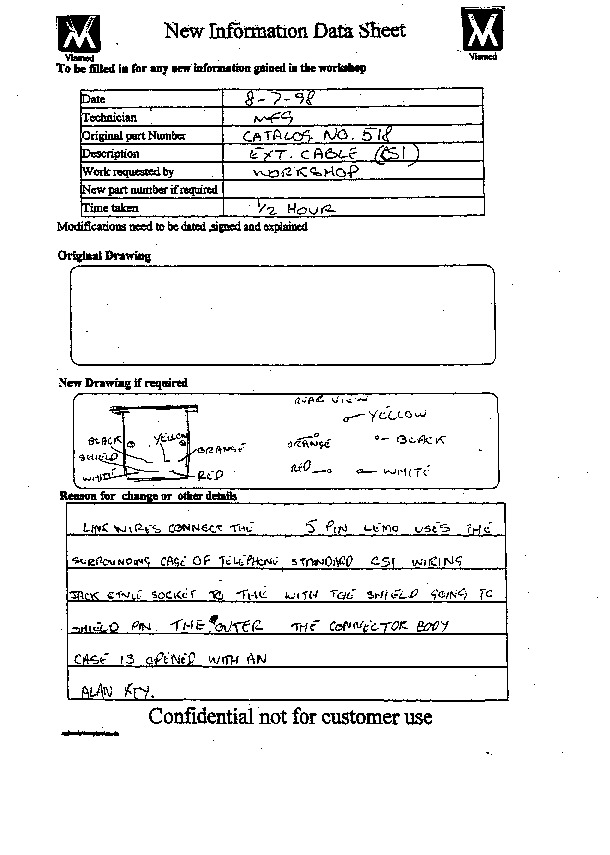 New Information Data Sheet
Viamed
Viamed
To be filled in for any new information gained in the workshop
Date 8-7-98
Technician MFS
Original part Number CATALOG NO. 518
Description EXT. CABLE (CSI)
Work requested by WORKSHOP
New part number if required
Time taken 1/2 HOUR
Modifications need to be dated ,signed and explained
Original Drawing
New Drawing if required
REAR VIEW
YELLOW
BLACK YELLOW ORANGE
ORANGE BLACK
SHIELD
WHITE RED
RED WHITE
Reason for change or other details
LINK WIRES CONNECT THE 5 PIN LEMO USES THE
SURROUNDING CASE OF TELEPHONE STANDARD CSI WIRING
JACK STYLE SOCKET TO THE WITH THE SHIELD GOING TO
SHIELD PIN. THE OUTER THE CONNECTOR BODY
CASE IS OPENED WITH AN
ALAN KEY.
Confidential not for customer use